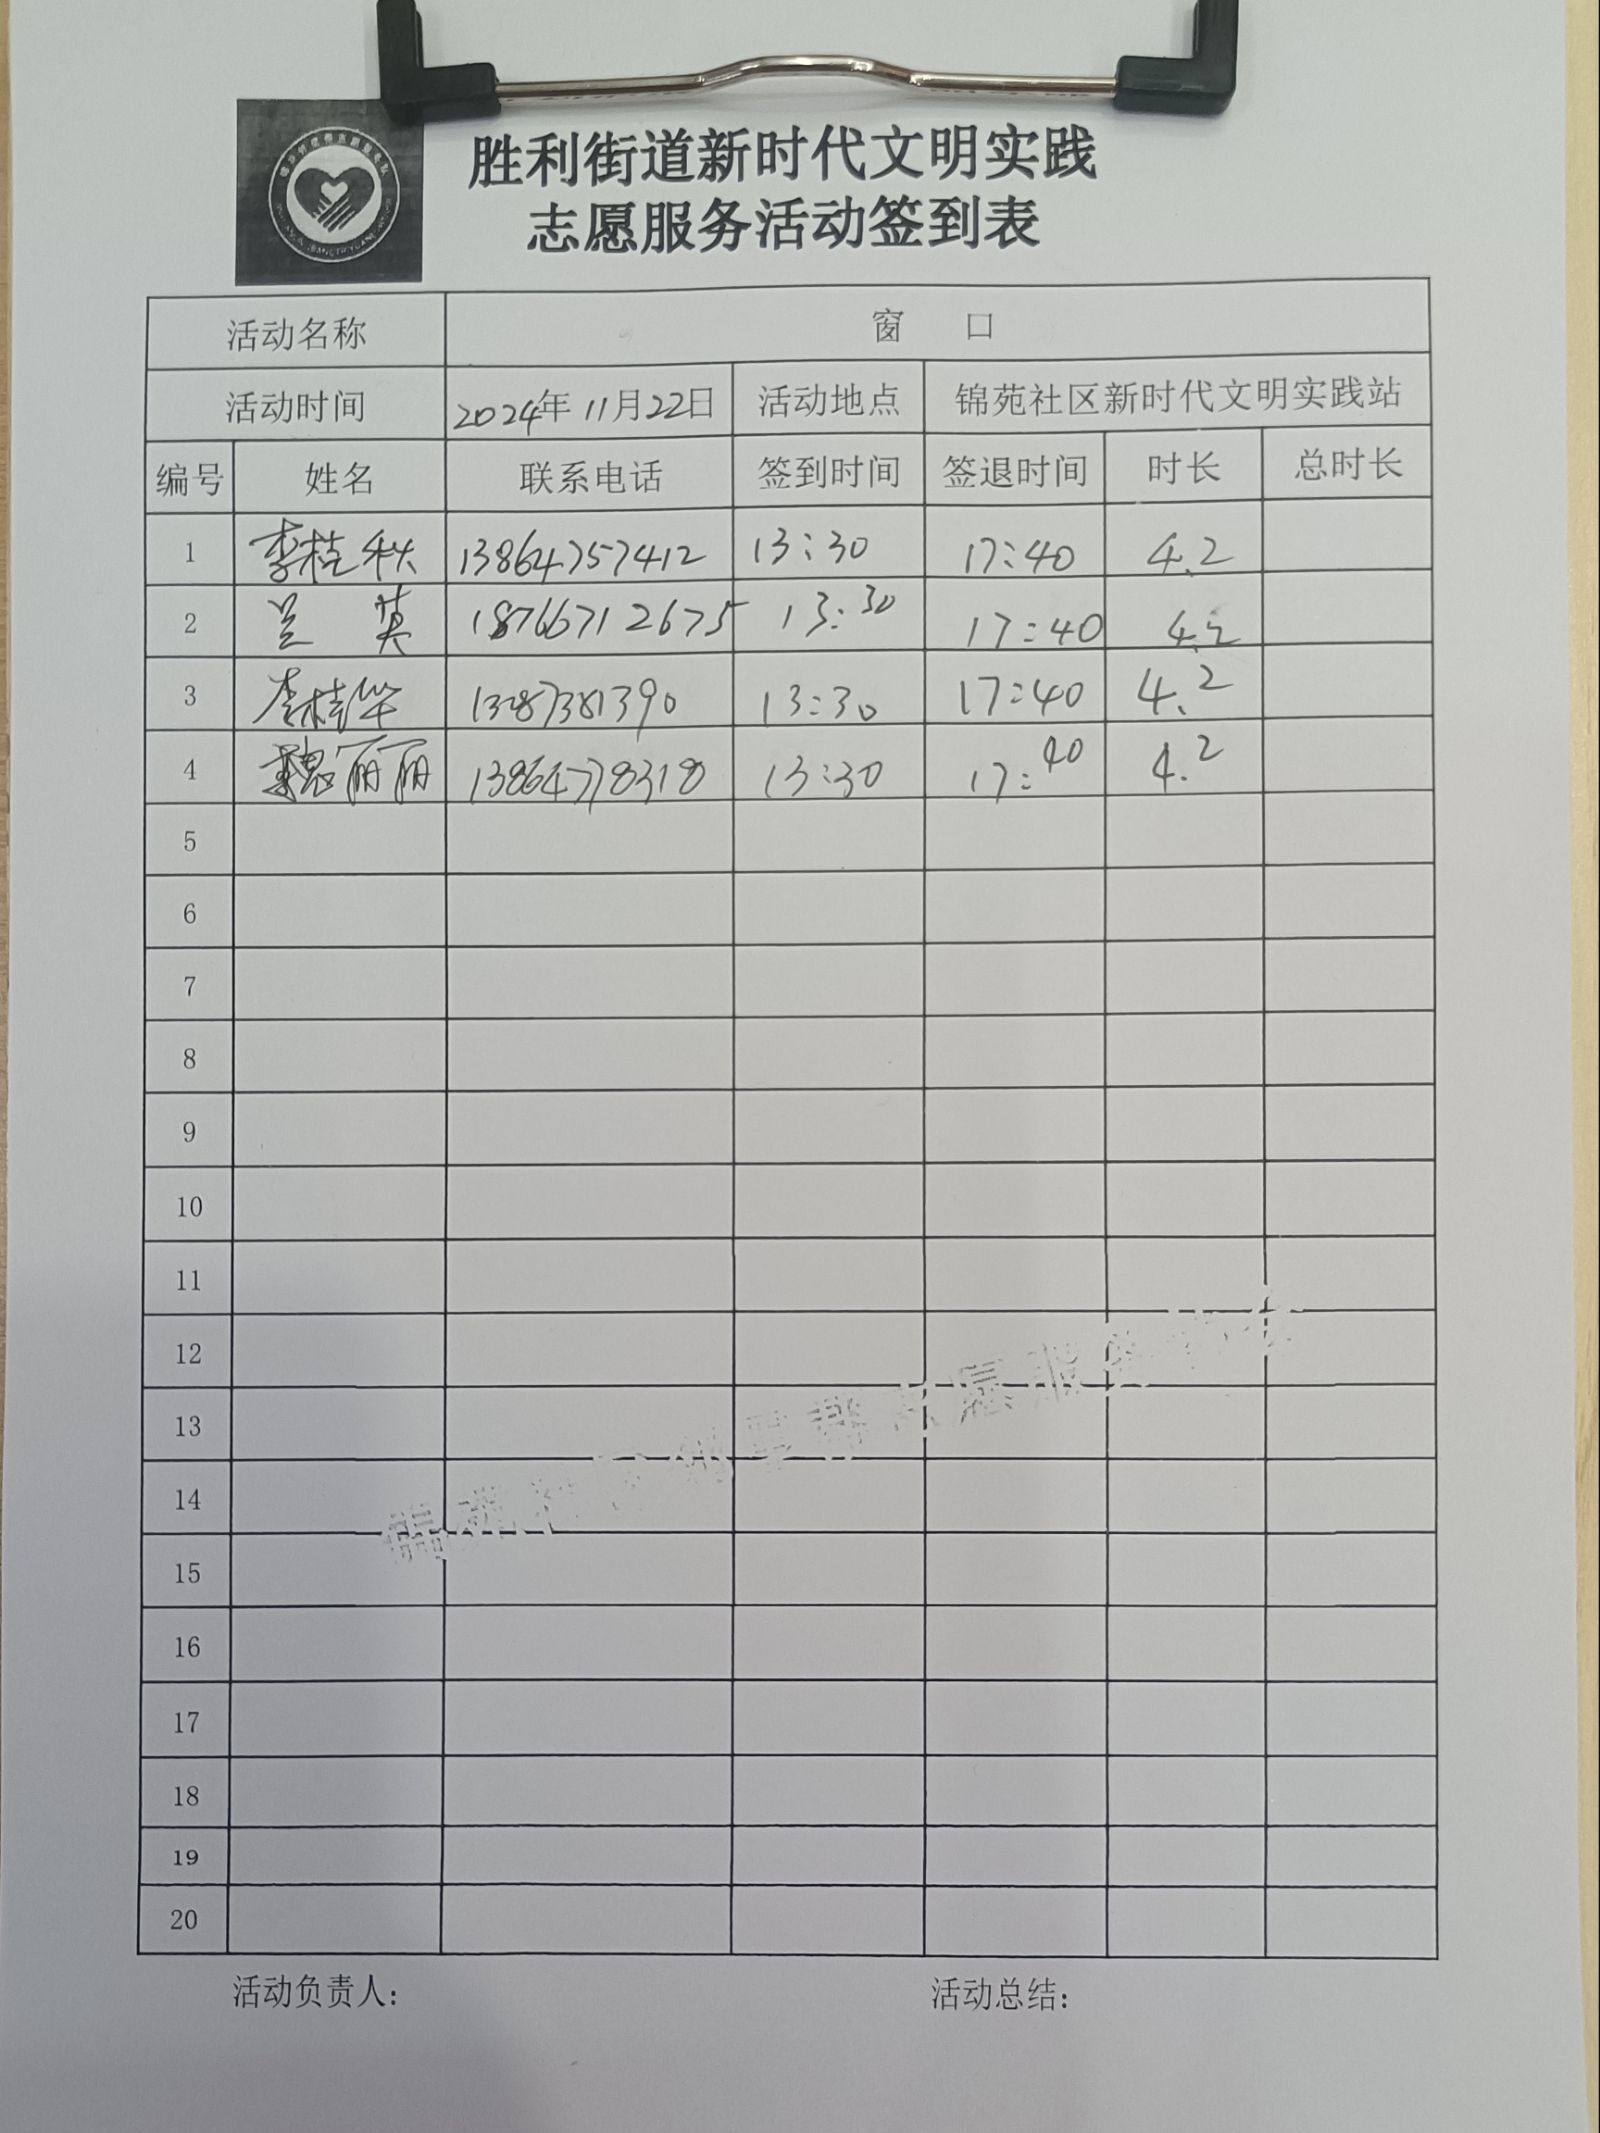 胜利街道新时代文明实践
志愿服务活动签到表
活动名称 窗 口
活动时间 2024年 11月22日 活动地点 锦苑社区新时代文明实践站
编号 姓名 联系电话 签到时间 签退时间 时长 总时长
1 李桂秋 13864757412 13:30 17:40 4.2
2 兰 英 18766712675 13:30 17:40 4.2
3 李桂华 13:30 17:40 4.2
4 魏丽丽 13864778318 13:30 17:40 4.2
5
6
7
8
9
10
11
12
13
14
15
16
17
18
19
20
活动负责人: 活动总结: